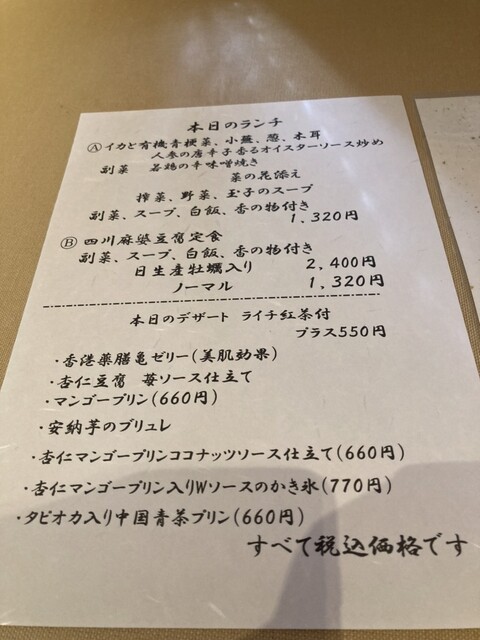 本日のランチ
Ⓐイカと有機青梗菜、小蕪、葱、木耳
人参の唐辛子香るオイスターソース炒め
副菜 若鶏の辛味噌焼き
菜の花添え
搾菜、野菜、玉子のスープ
副菜、スープ、白飯、香の物付き
1,320円
Ⓑ 四川麻婆豆腐定食
副菜、スープ、白飯、香の物付き
日生産牡蠣入り 2,400円
ノーマル 1,320円
本日のデザート ライチ紅茶付
プラス550円
・香港薬膳亀ゼリー(美肌効果)
・杏仁豆腐 苺ソース仕立て
・マンゴープリン(660円)
・安納芋のブリュレ
・杏仁マンゴープリンココナッツソース仕立て(660円)
・杏仁マンゴープリン入りWソースのかき氷(770円)
・タピオカ入り中国青茶プリン(660円)
すべて税込価格です